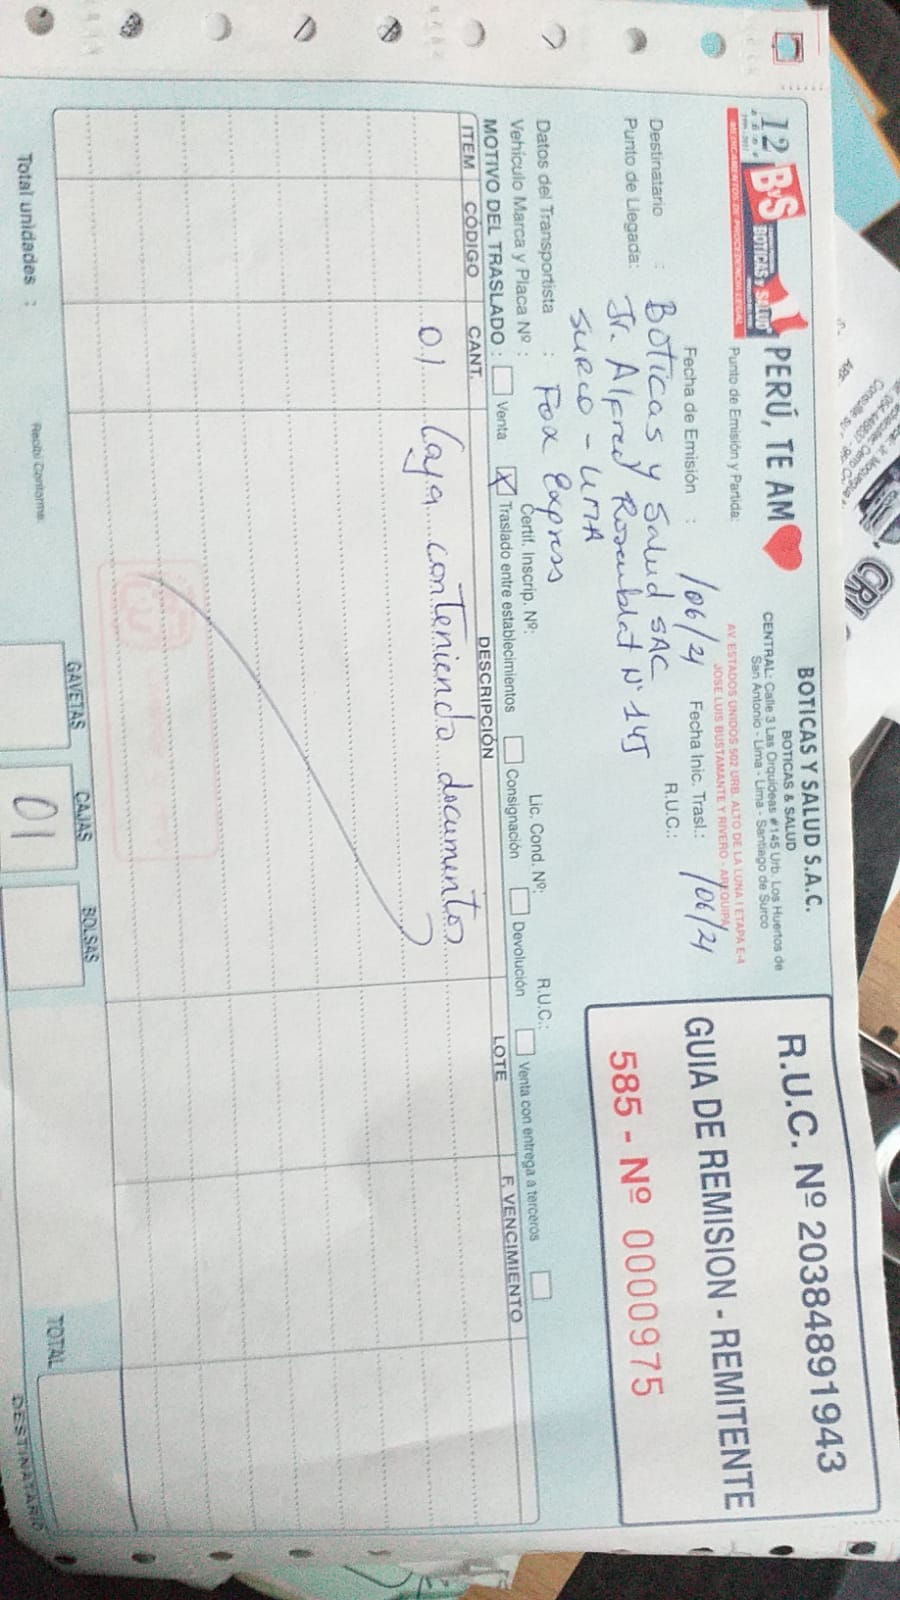 12 ByS BOTICAS y SALUD PERÚ, TE AM
MEDICAMENTOS DE PROCEDENCIA LEGAL
BOTICAS Y SALUD S.A.C.
BOTICAS & SALUD
CENTRAL: Calle 3 Las Orquideas #145 Urb. Los Huertos de
San Antonio - Lima - Lima - Santiago de Surco
Punto de Emisión y Partida: AV. ESTADOS UNIDOS 502 URB. ALTO DE LA LUNA I ETAPA E-4
JOSE LUIS BUSTAMANTE Y RIVERO - AREQUIPA
R.U.C. Nº 20384891943
GUIA DE REMISION - REMITENTE
585 - Nº 0000975
Fecha de Emisión : /06/21 Fecha Inic. Trasl.: /06/21
Destinatario : Boticas y Salud SAC R.U.C.:
Punto de Llegada: Jr. Alfred Rosenblat Nº 145
Surco - Lima
Datos del Transportista : Fox Express Lic. Cond. Nº: R.U.C.:
Vehículo Marca y Placa Nº : Certif. Inscrip. Nº:
MOTIVO DEL TRASLADO : Venta X Traslado entre establecimientos Consignación Devolución Venta con entrega a terceros
ITEM CÓDIGO CANT. DESCRIPCIÓN LOTE F. VENCIMIENTO
01 Caja conteniendo documentos
Total unidades : Recibí Conforme: GAVETAS CAJAS BOLSAS TOTAL
01
DESTINATARIO